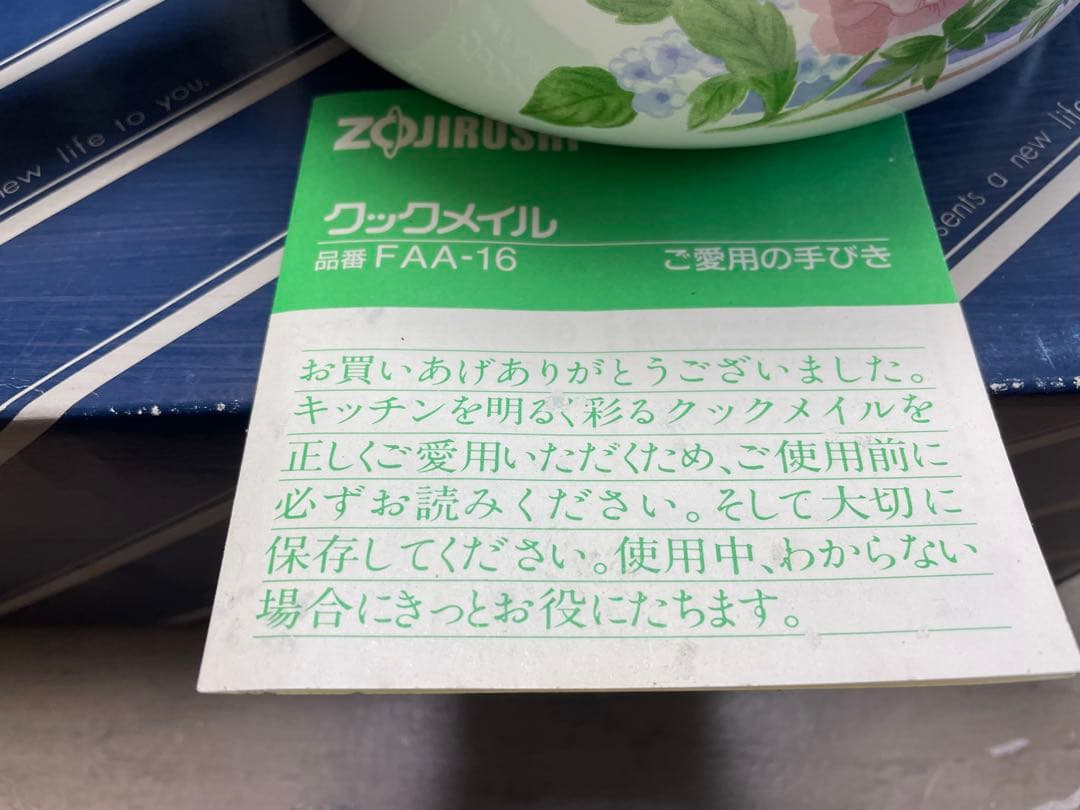 new life to you.
sents a new life
ZOJIRUSHI
クックメイル
品番 FAA-16 ご愛用の手びき
お買いあげありがとうございました。
キッチンを明るく彩るクックメイルを
正しくご愛用いただくため、ご使用前に
必ずお読みください。そして大切に
保存してください。使用中、わからない
場合にきっとお役にたちます。